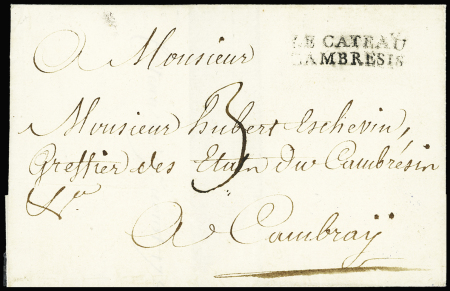 LE CATEAU
CAMBRESIS
A Monsieur
Monsieur hubert Eschevin,
Greffier des Etats du Cambrésin
&a.
3
A Cambraÿ